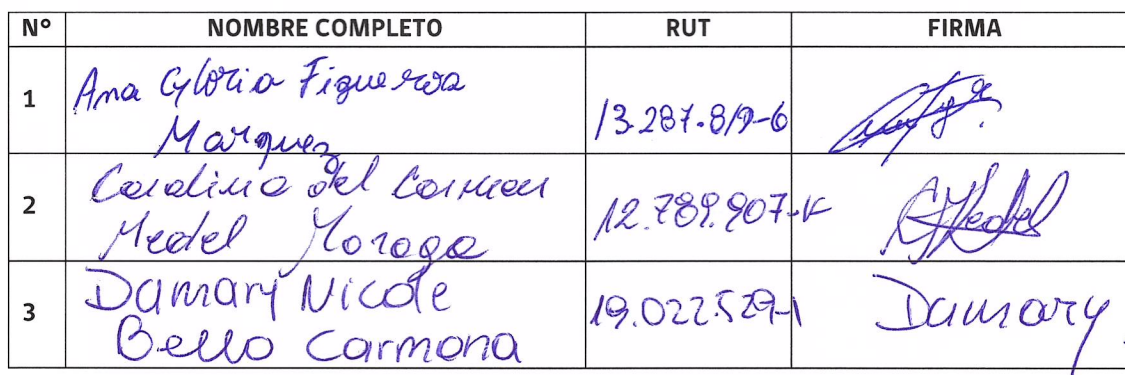 N° NOMBRE COMPLETO RUT FIRMA
1 Ana Gloria Figueroa
Marquez 13.287.819-6
2 Carolina del Carmen
Medel Moraga 12.789.907-K CMedel
3 Damary Nicole
Bello Carmona 19.022.529-1 Damary